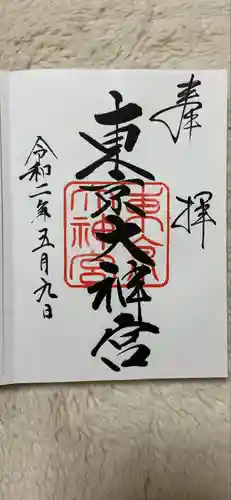 奉拝
東京大神宮
令和二年五月九日
東京
大神宮